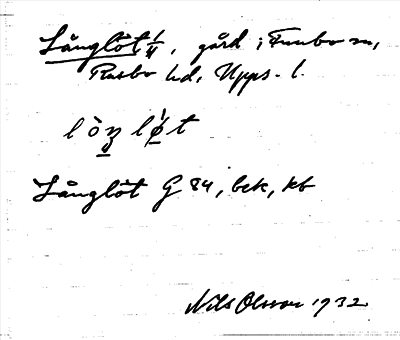 Långlöt 1/4, gård i Funbo sn,
Rasbo hd, Upps. l.
Långlöt G 84, bek, kb
Nils Olsson 1932